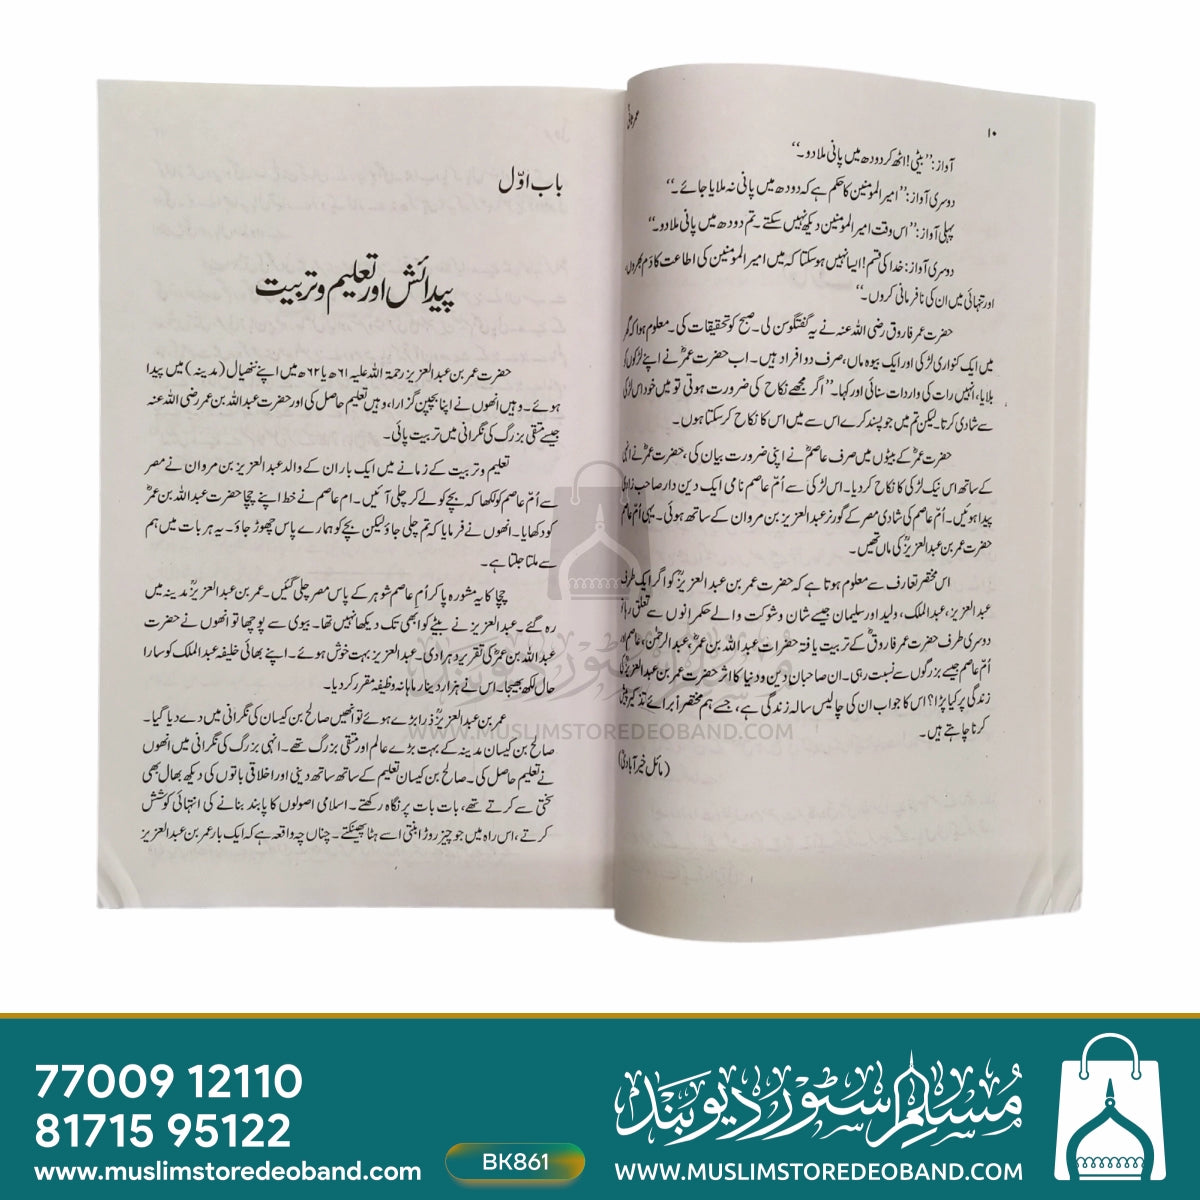 ۱۰
عمر ثانیؒ
آواز: ’’بیٹی! اٹھ کر دودھ میں پانی ملا دو۔‘‘
دوسری آواز: ’’امیر المومنین کا حکم ہے کہ دودھ میں پانی نہ ملایا جائے۔‘‘
پہلی آواز: ’’اس وقت امیر المومنین دیکھ نہیں سکتے۔ تم دودھ میں پانی ملا دو۔‘‘
دوسری آواز: خدا کی قسم! ایسا نہیں ہو سکتا کہ میں امیر المومنین کی اطاعت کا دَم بھروں،
اور تنہائی میں ان کی نافرمانی کروں۔‘‘
حضرت عمر فاروق رضی اللہ عنہ نے یہ گفتگو سن لی۔ صبح کو تحقیقات کی۔ معلوم ہوا کہ گھر
میں ایک کنواری لڑکی اور ایک بیوہ ماں، صرف دو افراد ہیں۔ اب حضرت عمرؓ نے اپنے لڑکوں کو
بلایا، انہیں رات کی واردات سنائی اور کہا۔ ’’اگر مجھے نکاح کی ضرورت ہوتی تو میں خود اس لڑکی
سے شادی کرتا۔ لیکن تم میں جو پسند کرے اس سے میں اس کا نکاح کر سکتا ہوں۔
حضرت عمرؓ کے بیٹوں میں صرف عاصمؒ نے اپنی ضرورت بیان کی، حضرت عمرؓ نے انہی
کے ساتھ اس نیک لڑکی کا نکاح کر دیا۔ اس لڑکی سے اُمّ عاصم نامی ایک دین دار صاحب زادی
پیدا ہوئیں۔ اُمّ عاصم کی شادی مصر کے گورنر عبدالعزیز بن مروان کے ساتھ ہوئی۔ یہی اُمّ عاصم
حضرت عمر بن عبدالعزیزؒ کی ماں تھیں۔
اس مختصر تعارف سے معلوم ہوتا ہے کہ حضرت عمر بن عبدالعزیزؒ کو اگر ایک طرف
عبدالعزیز، عبدالملک، ولید اور سلیمان جیسے شان و شوکت والے حکمرانوں سے تعلق رہا تو
دوسری طرف حضرت عمر فاروقؓ کے تربیت یافتہ حضرات عبداللہ بن عمرؓ، عبدالرحمٰن، عاصم اور
اُمّ عاصم جیسے بزرگوں سے نسبت رہی۔ ان صاحبان دین و دنیا کا اثر حضرت عمر بن عبدالعزیزؒ کی
زندگی پر کیا پڑا؟ اس کا جواب ان کی چالیس سالہ زندگی ہے، جسے ہم مختصراً برائے تذکیر پیش
کرنا چاہتے ہیں۔
(مائل خیرآبادیؒ)
باب اوّل
پیدائش اور تعلیم و تربیت
حضرت عمر بن عبدالعزیز رحمۃ اللہ علیہ ۶۱ھ یا ۶۲ھ میں اپنے ننھیال (مدینہ) میں پیدا
ہوئے۔ وہیں انھوں نے اپنا بچپن گزارا، وہیں تعلیم حاصل کی اور حضرت عبداللہ بن عمر رضی اللہ عنہ
جیسے متقی بزرگ کی نگرانی میں تربیت پائی۔
تعلیم و تربیت کے زمانے میں ایک بار ان کے والد عبدالعزیز بن مروان نے مصر
سے اُمّ عاصم کو لکھا کہ بچے کو لے کر چلی آئیں۔ ام عاصم نے خط اپنے چچا حضرت عبداللہ بن عمرؓ
کو دکھایا۔ انھوں نے فرمایا کہ تم چلی جاؤ لیکن بچے کو ہمارے پاس چھوڑ جاؤ۔ یہ ہر بات میں ہم
سے ملتا جلتا ہے۔
چچا کا یہ مشورہ پا کر اُم عاصم شوہر کے پاس مصر چلی گئیں۔ عمر بن عبدالعزیزؒ مدینہ میں
رہ گئے۔ عبدالعزیز نے بیٹے کو ابھی تک دیکھا نہیں تھا۔ بیوی سے پوچھا تو انھوں نے حضرت
عبداللہ بن عمرؓ کی تقریر دہرا دی۔ عبدالعزیز بہت خوش ہوئے۔ اپنے بھائی خلیفہ عبدالملک کو سارا
حال لکھ بھیجا۔ اس نے ہزار دینار ماہانہ وظیفہ مقرر کر دیا۔
عمر بن عبدالعزیزؒ ذرا بڑے ہوئے تو انھیں صالح بن کیسان کی نگرانی میں دے دیا گیا۔
صالح بن کیسان مدینہ کے بہت بڑے عالم اور متقی بزرگ تھے۔ انہی بزرگ کی نگرانی میں انھوں
نے تعلیم حاصل کی۔ صالح بن کیسان تعلیم کے ساتھ ساتھ دینی اور اخلاقی باتوں کی دیکھ بھال بھی
سختی سے کرتے تھے، بات بات پر نگاہ رکھتے۔ اسلامی اصولوں کا پابند بنانے کی انتہائی کوشش
کرتے، اس راہ میں جو چیز روڑا بنتی اسے ہٹا پھینکتے۔ چناں چہ واقعہ ہے کہ ایک بار عمر بن عبدالعزیز
مسلم سٹور دیوبند
WWW.MUSLIMSTOREDEOBAND.COM
77009 12110
81715 95122
www.muslimstoredeoband.com
BK861
مسلم سٹور دیوبند
WWW.MUSLIMSTOREDEOBAND.COM